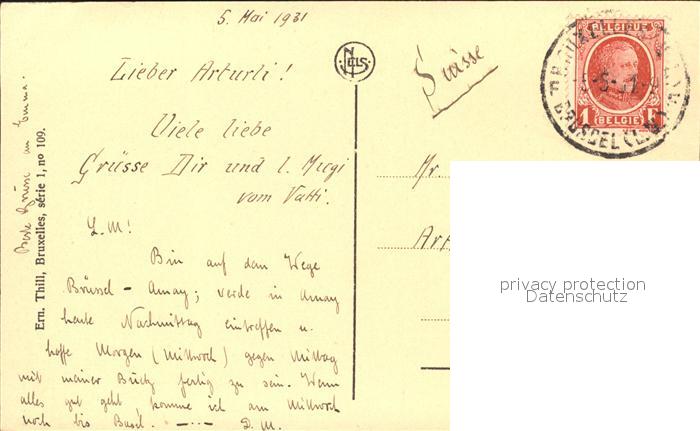 5. Mai 1931
Lieber Arturli!
Viele liebe
Grüsse Dir und l. Mugi
vom Vatti.
L. M!
Bin auf dem Wege
Brüssel - Amay; werde in Amay
heute Nachmittag eintreffen u.
hoffe Morgen (Mittwoch) gegen Mittag
mit meiner Büetz fertig zu sein. Wenn
alles gut geht, komme ich am Mittwoch
noch bis Basel. —·—·— D. M.
Beste Grüsse an Emma.
Ern. Thill, Bruxelles, série 1, no 109.
NELS
Suisse
BELGIQUE
1 F
BELGIE
BRUSSEL
Mr.
Art
privacy protection
Datenschutz